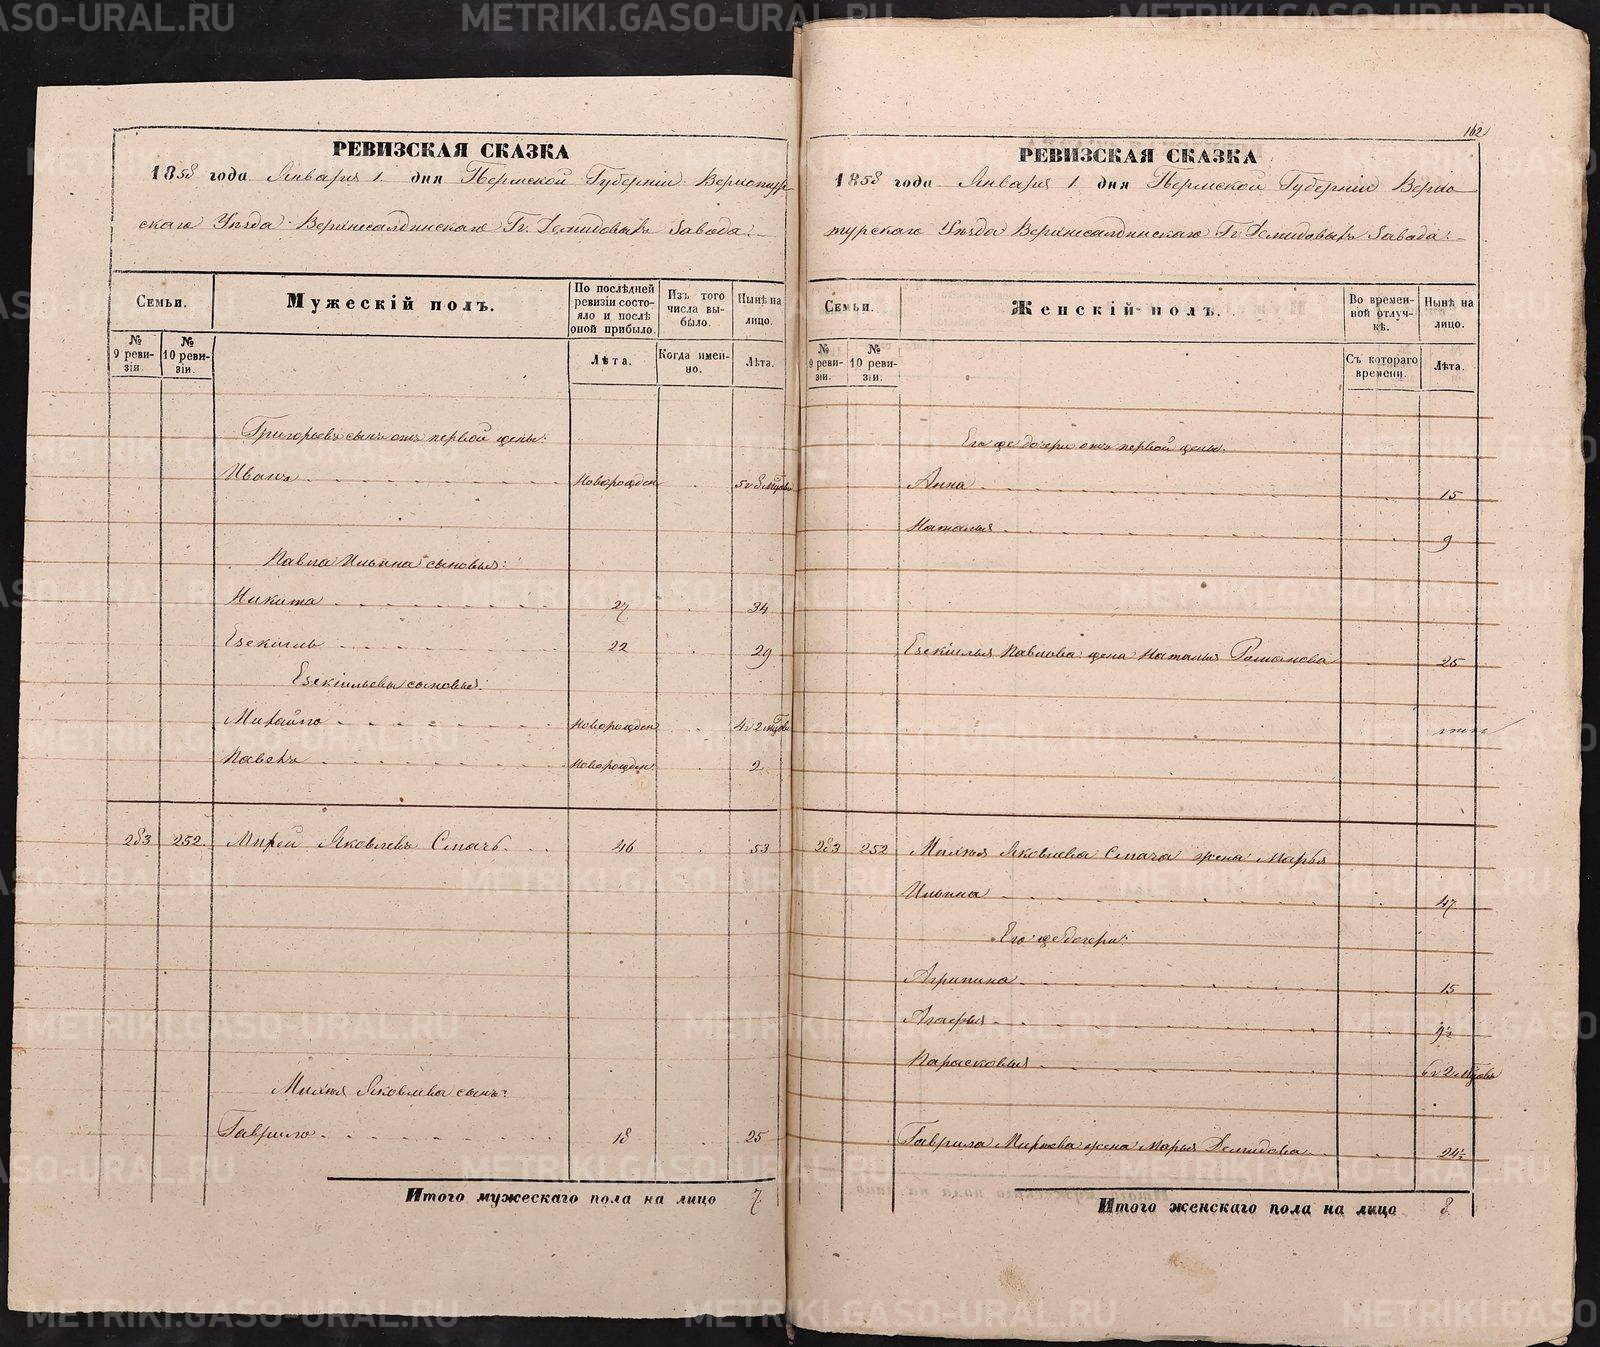 РЕВИЗСКАЯ СКАЗКА
1858 года Января 1. дня Пермской Губерніи Верхотур-
скаго Уѣзда Верхнесалдинскаго Гг. Демидовыхъ Завода.
Семьи.
Мужескій полъ.
По послѣдней ревизіи состояло и послѣ оной прибыло.
Изъ того числа выбыло.
Нынѣ на лицо.
№ 9 ревизіи.
№ 10 ревизіи.
Лѣта.
Когда именно.
Лѣта.
Григорьевъ сынъ отъ первой жены:
Иванъ новорожден 5 и 8 мѣсяц
Павла Ильина сыновья:
Никита 27 34
Езекіиль 22 29
Езекіильевы сыновья:
Михайло новорожден 4 и 2 мѣсяц
Павелъ новорожден 2
283 252. Михей Яковлевъ Смагъ 46 53
Михея Яковлева сынъ:
Гаврило 18 25
Итого мужескаго пола на лицо 7
162
РЕВИЗСКАЯ СКАЗКА
1858 года Января 1 дня Пермской Губерніи Верхо-
турскаго Уѣзда Верхнесалдинскаго Гг. Демидовыхъ Завода.
Семьи.
Женскій полъ.
Во временной отлучкѣ.
Нынѣ на лицо.
№ 9 ревизіи.
№ 10 ревизіи.
Съ котораго времени.
Лѣта.
Его же дочери отъ первой жены.
Анна 15
Наталья 9
Езекіилья Павлова жена Наталья Романова 25
283 252 Михея Яковлева Смага жена Марья
Ильина 47
Его же дочери:
Агрипина 15
Агафья 9½
Парасковья 6 и 2 мѣсяц
Гаврила Михеева жена Марья Демидова 24½
Итого женскаго пола на лицо 8
METRIKI.GASO-URAL.RU